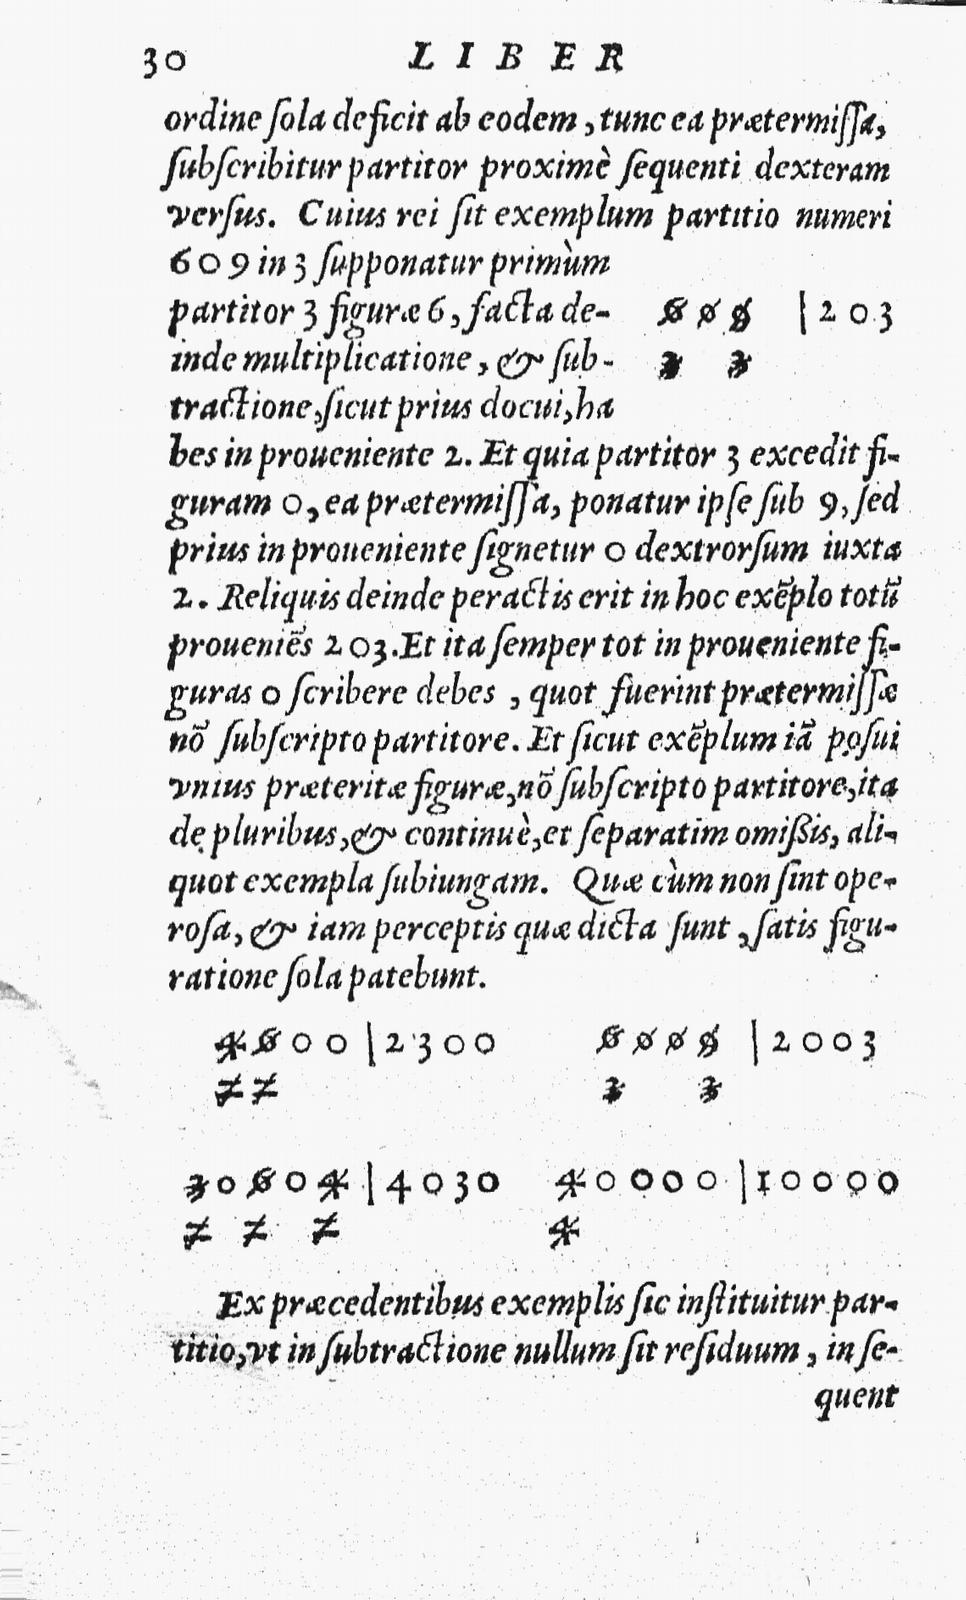 30 LIBER
ordine ſola deficit ab eodem, tunc ea prætermiſſa,
ſubſcribitur partitor proximè ſequenti dexteram
verſus. Cuius rei ſit exemplum partitio numeri
609 in 3 ſupponatur primùm
partitor 3 figuræ 6, facta de-
inde multiplicatione, & ſub-
tractione, ſicut prius docui, ha
6 0 9 | 2 0 3
3 3
bes in proueniente 2. Et quia partitor 3 excedit fi-
guram 0, ea prætermiſſa, ponatur ipſe ſub 9, ſed
prius in proueniente ſignetur 0 dextrorſum iuxta
2. Reliquis deinde peractis erit in hoc exẽplo totũ
proueniẽs 203. Et ita ſemper tot in proueniente fi-
guras 0 ſcribere debes, quot fuerint prætermiſſæ
nõ ſubſcripto partitore. Et ſicut exẽplum iã poſui
vnius præteritæ figuræ, nõ ſubſcripto partitore, ita
de pluribus, & continuè, et ſeparatim omißis, ali-
quot exempla ſubiungam. Quæ cùm non ſint ope-
roſa, & iam perceptis quæ dicta ſunt, ſatis figu-
ratione ſola patebunt.
4 6 0 0 | 2 3 0 0 6 0 0 9 | 2 0 0 3
2 2 3 3
8 0 6 0 4 | 4 0 3 0 4 0 0 0 0 | 1 0 0 0 0
2 2 2 4
Ex præcedentibus exemplis ſic inſtituitur par-
titio, vt in ſubtractione nullum ſit reſiduum, in ſe-
quent